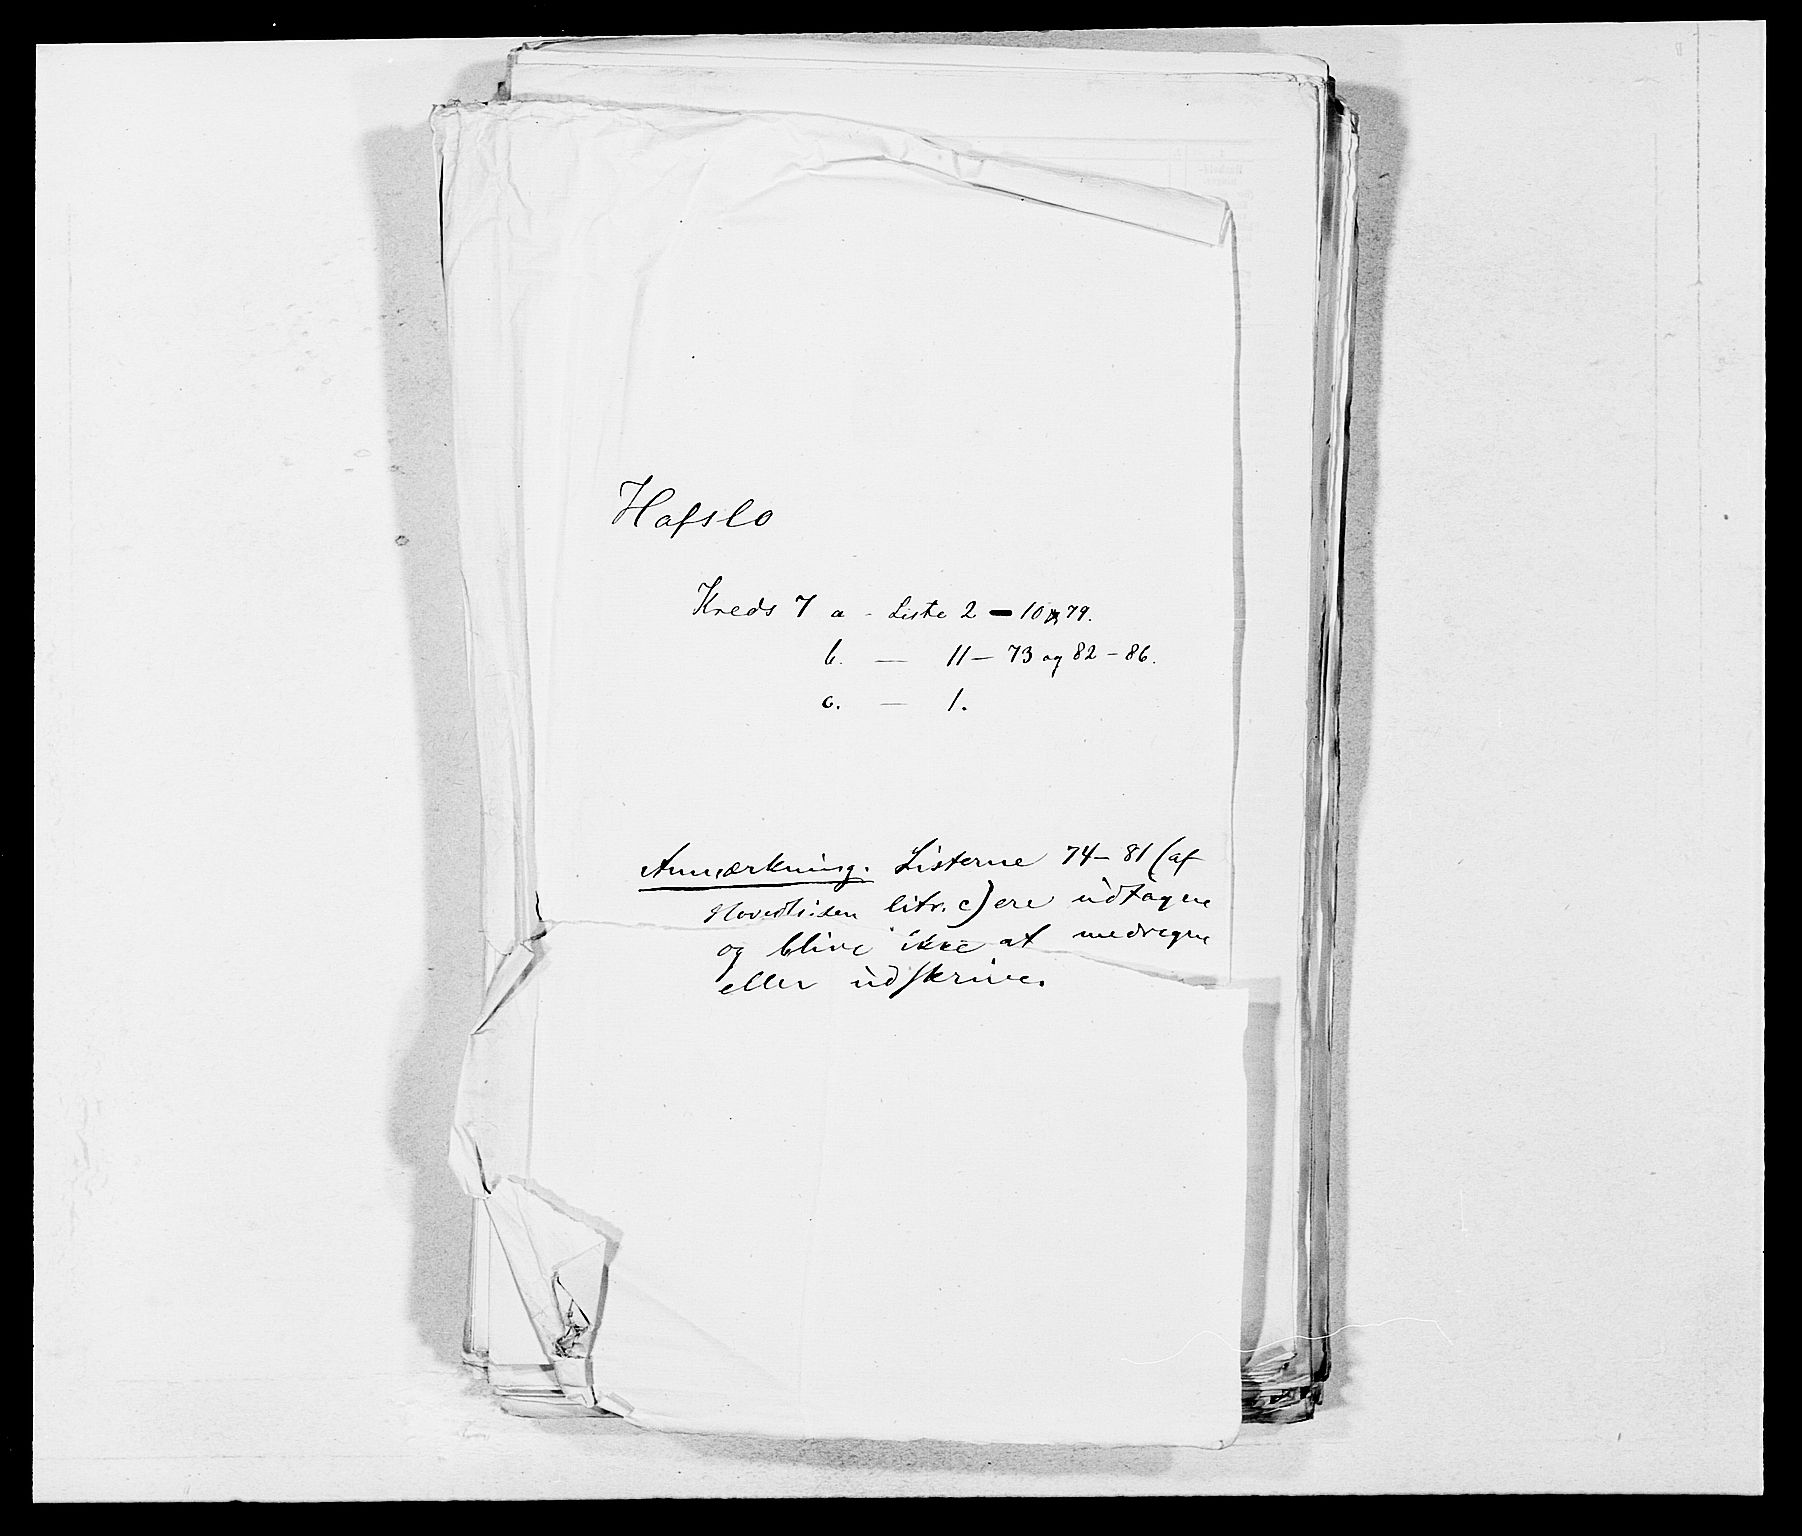 Hafslo
Kreds 7 a - Liste 2 — 10 79.
b. — 11 — 73 og 82 - 86.
c. — 1.
Anmærkning. Listerne 74 - 81 (af
Hovedlisten litr. c) ere udtagne
og blive ikke at medregne
eller udskrive.